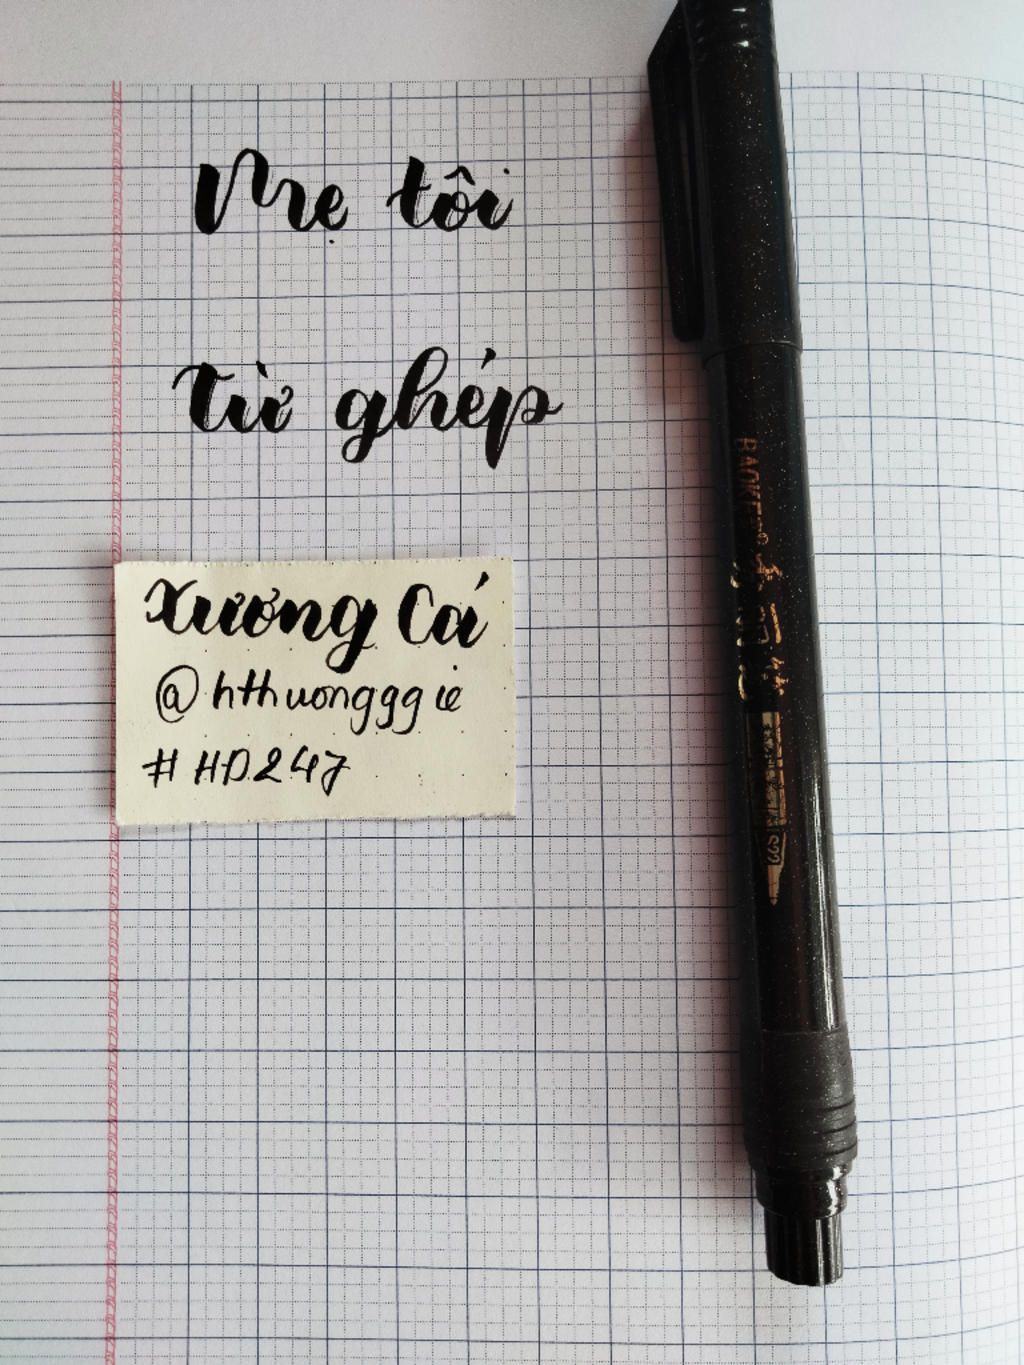 Mẹ tôi
Từ ghép
Xương Cá
@hthuongggie
#HD247
BAOKE